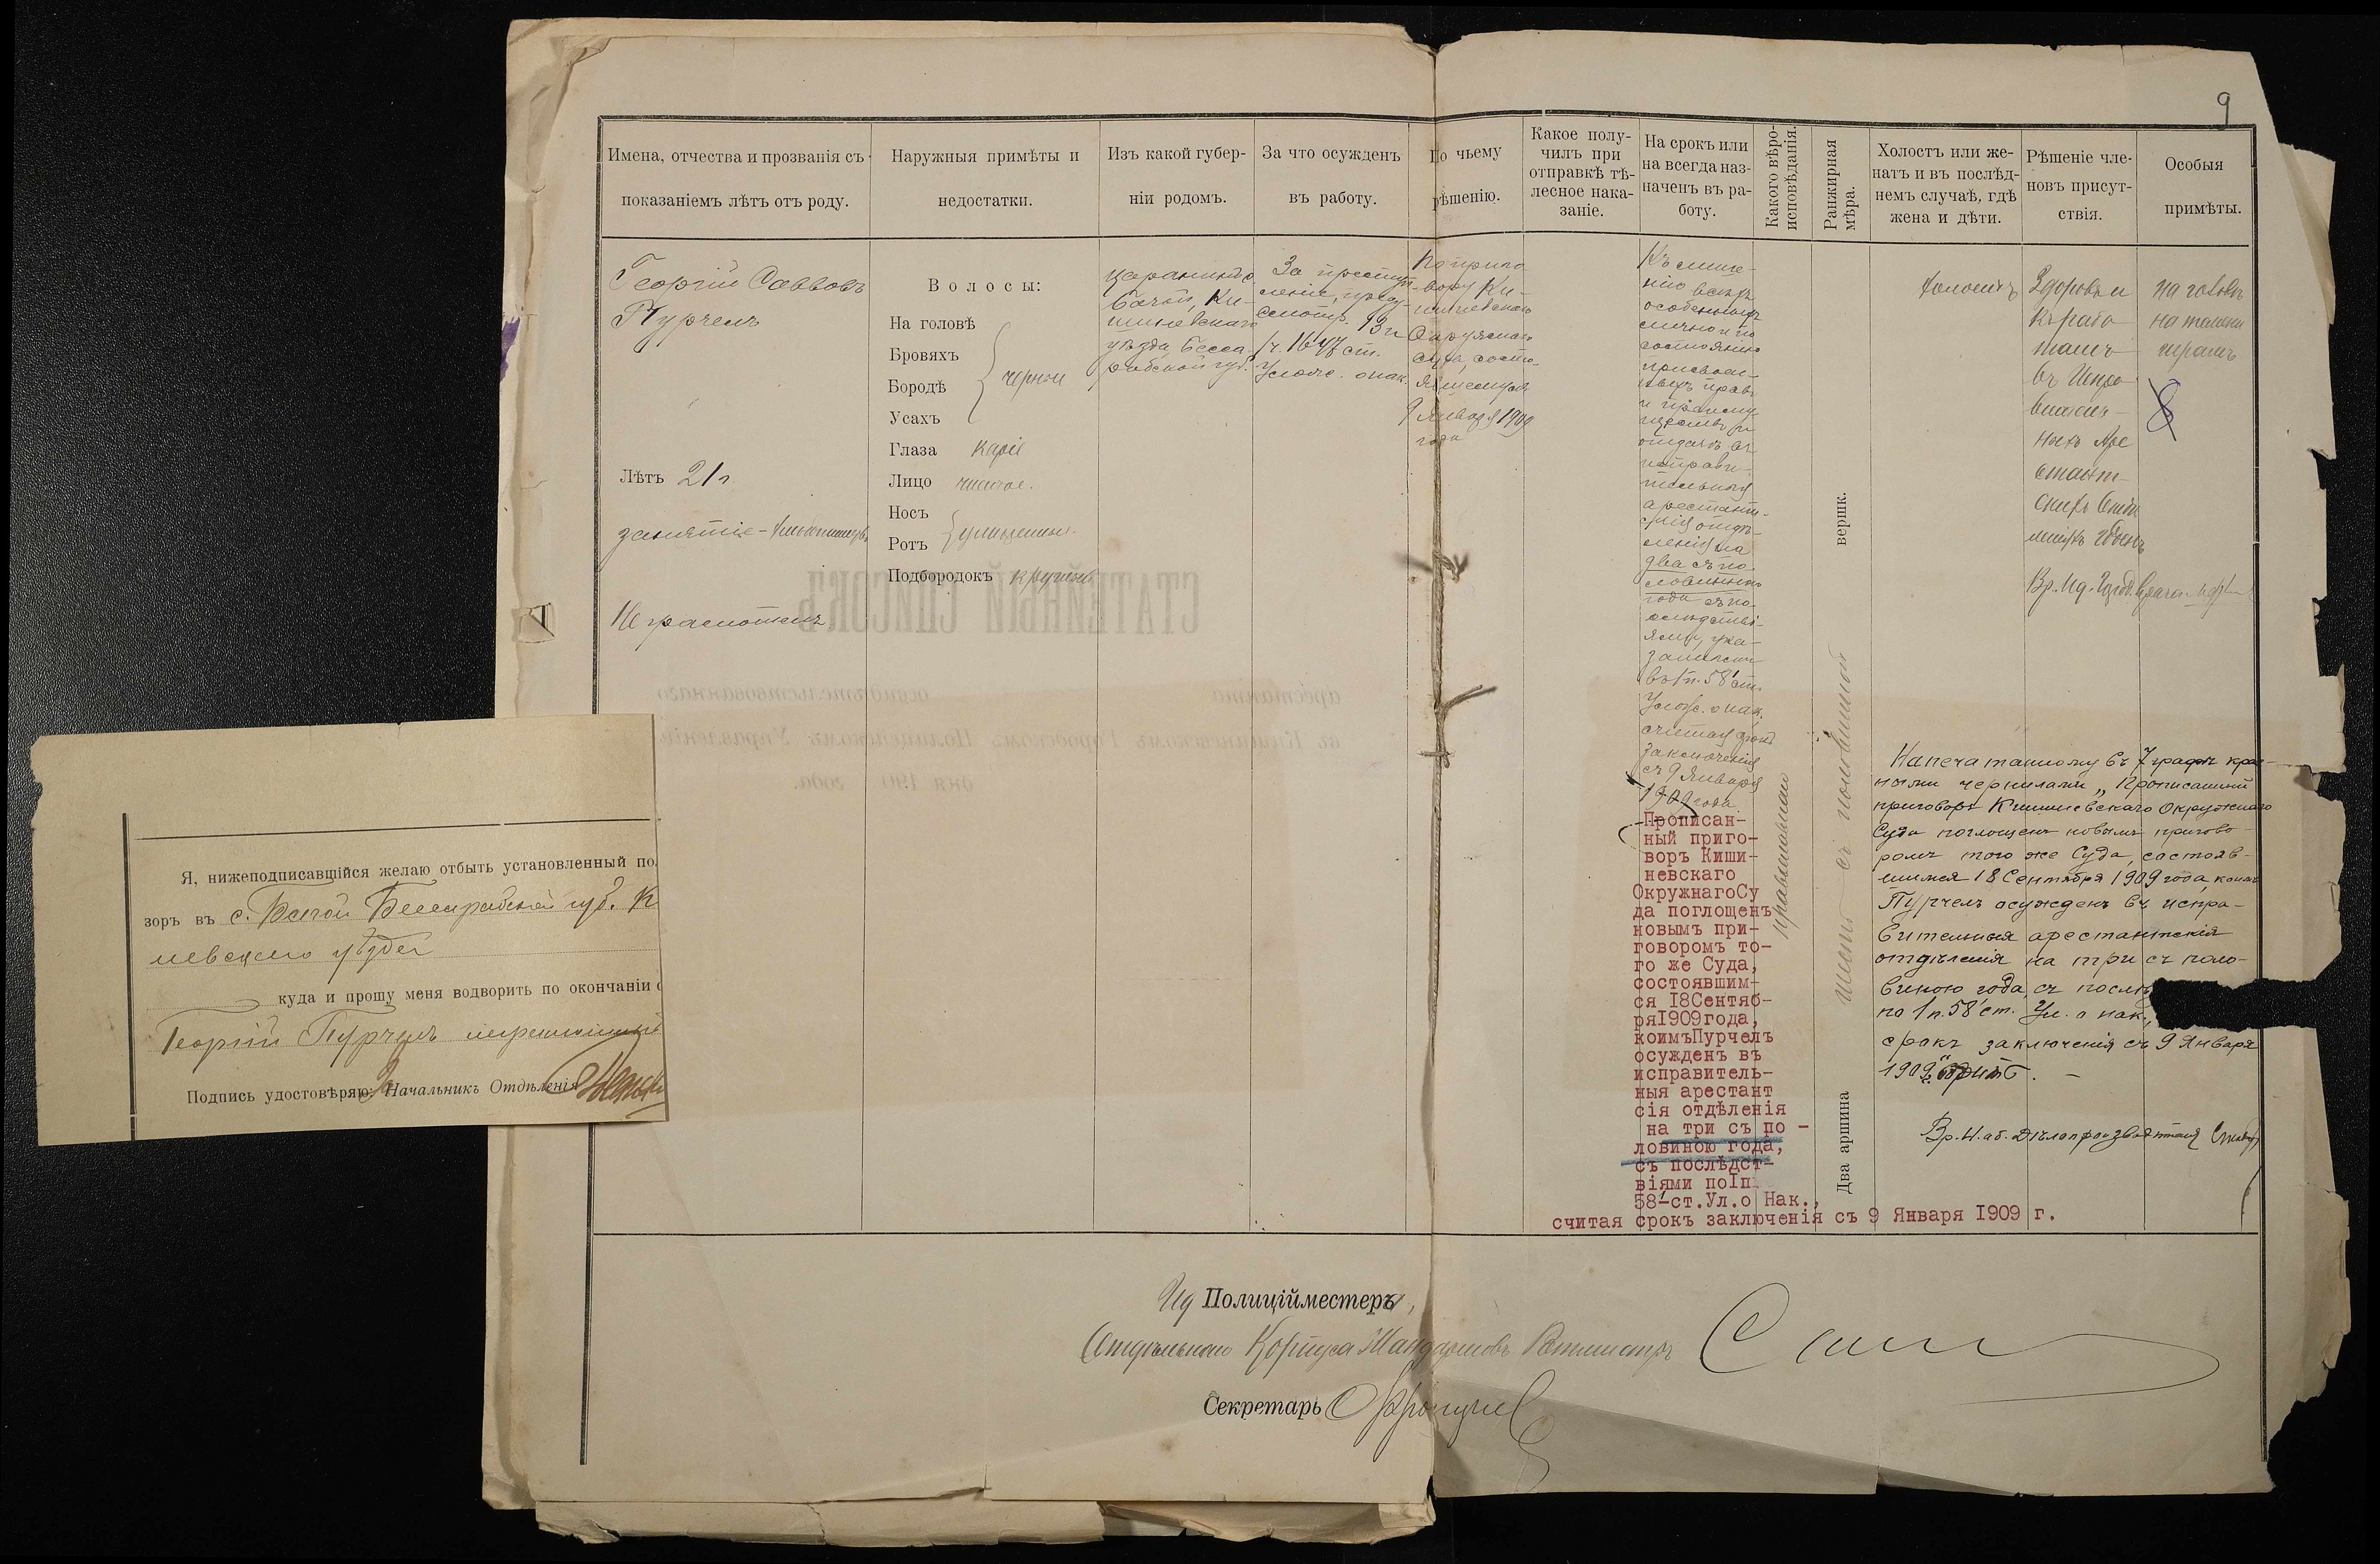 9
Имена, отчества и прозванія съ
показаніемъ лѣтъ отъ роду.
Наружныя примѣты и
недостатки.
Изъ какой губер-
ніи родомъ.
За что осужденъ
въ работу.
По чьему
рѣшенію.
Какое полу-
чилъ при
отправкѣ тѣ-
лесное нака-
заніе.
На срокъ или
на всегда наз-
наченъ въ ра-
боту.
Какого вѣро-
исповѣданія.
Ранжирная
мѣра.
Холостъ или же-
натъ и въ послѣд-
немъ случаѣ, гдѣ
жена и дѣти.
Рѣшеніе чле-
новъ присут-
ствія.
Особыя
примѣты.
Георгій Саввовъ
Пурчелъ
Лѣтъ 21 г
занятіе - хлѣбопашецъ
Неграмотенъ
Волосы:
На головѣ
Бровяхъ
Бородѣ
Усахъ
черные
Глаза каріе
Лицо чистое.
Носъ
Ротъ
умѣренные
Подбородокъ круглый
царанинъ с.
Бачой, Ки-
шиневскаго
уѣзда Бесса-
рабской губ.
За преступ-
леніе, преду-
смотр. 13 и
1 ч. 1647 ст.
Улож. о нак.
По приго-
вору Ки-
шиневскаго
Окружнаго
Суда, состо-
явшемуся
9 Января 1909
года
Къ лише-
нію всѣхъ
особенныхъ
лично и по
состоянію
присвоен-
ныхъ правъ
и преиму-
ществъ и
отдачѣ въ
исправи-
тельныя
арестант-
скія отдѣ-
ленія на
два съ по-
ловиною
года съ по-
слѣдстві-
ями, ука-
занными
въ 1 п. 58¹ ст.
Улож. о нак.
считая срокъ
заключенія
съ 9 Января
1909 года.
Прописан-
ный приго-
воръ Киши-
невскаго
ОкружнагоСу
да поглощенъ
новымъ при-
говоромъ то-
го же Суда,
состоявшим-
ся 18Сентяб-
ря1909года,
коимъПурчелъ
осужденъ въ
исправитель-
ныя арестант
сія отдѣленія
на три съ по -
ловиною года,
съ послѣдст-
віями поIп.
58¹-ст.Ул.о Нак.,
считая срокъ заключенія съ 9 Января 1909 г.
Православнаго
Два аршина шесть съ половиной вершк.
холостъ
Здоровъ и
къ рабо-
тамъ
въ Испра-
витель-
ныхъ Аре-
стант-
скихъ Отдѣ-
леніяхъ годенъ
на головѣ
на темени
шрамъ
Напечатанному въ 7 графѣ крас-
ными чернилами „Прописанный
приговоръ Кишиневскаго Окружнаго
Суда поглощенъ новымъ пригово-
ромъ того же Суда, состояв-
шимся 18 Сентября 1909 года, коимъ
Пурчелъ осужденъ въ испра-
вительныя арестантскія
отдѣленія на три съ поло-
виною года, съ послѣд
по 1 п. 58¹ ст. Ул. о нак.,
срокъ заключенія съ 9 Января
1909 г.
Вр. И. об. Дѣлопроизводителя
Ид Полиціймейстера,
Отдѣльнаго Корпуса Жандармовъ Ротмистръ
Секретарь
СТАТЕЙНЫЙ СПИСОКЪ
Я, нижеподписавшійся желаю отбыть установленный по
зоръ въ с. Бачой Бессарабской губ. К
невскаго уѣзда
куда и прошу меня водворить по окончаніи с
Георгій Пурчелъ неграмотный
Подпись удостовѣряю: За Начальникъ Отдѣленія